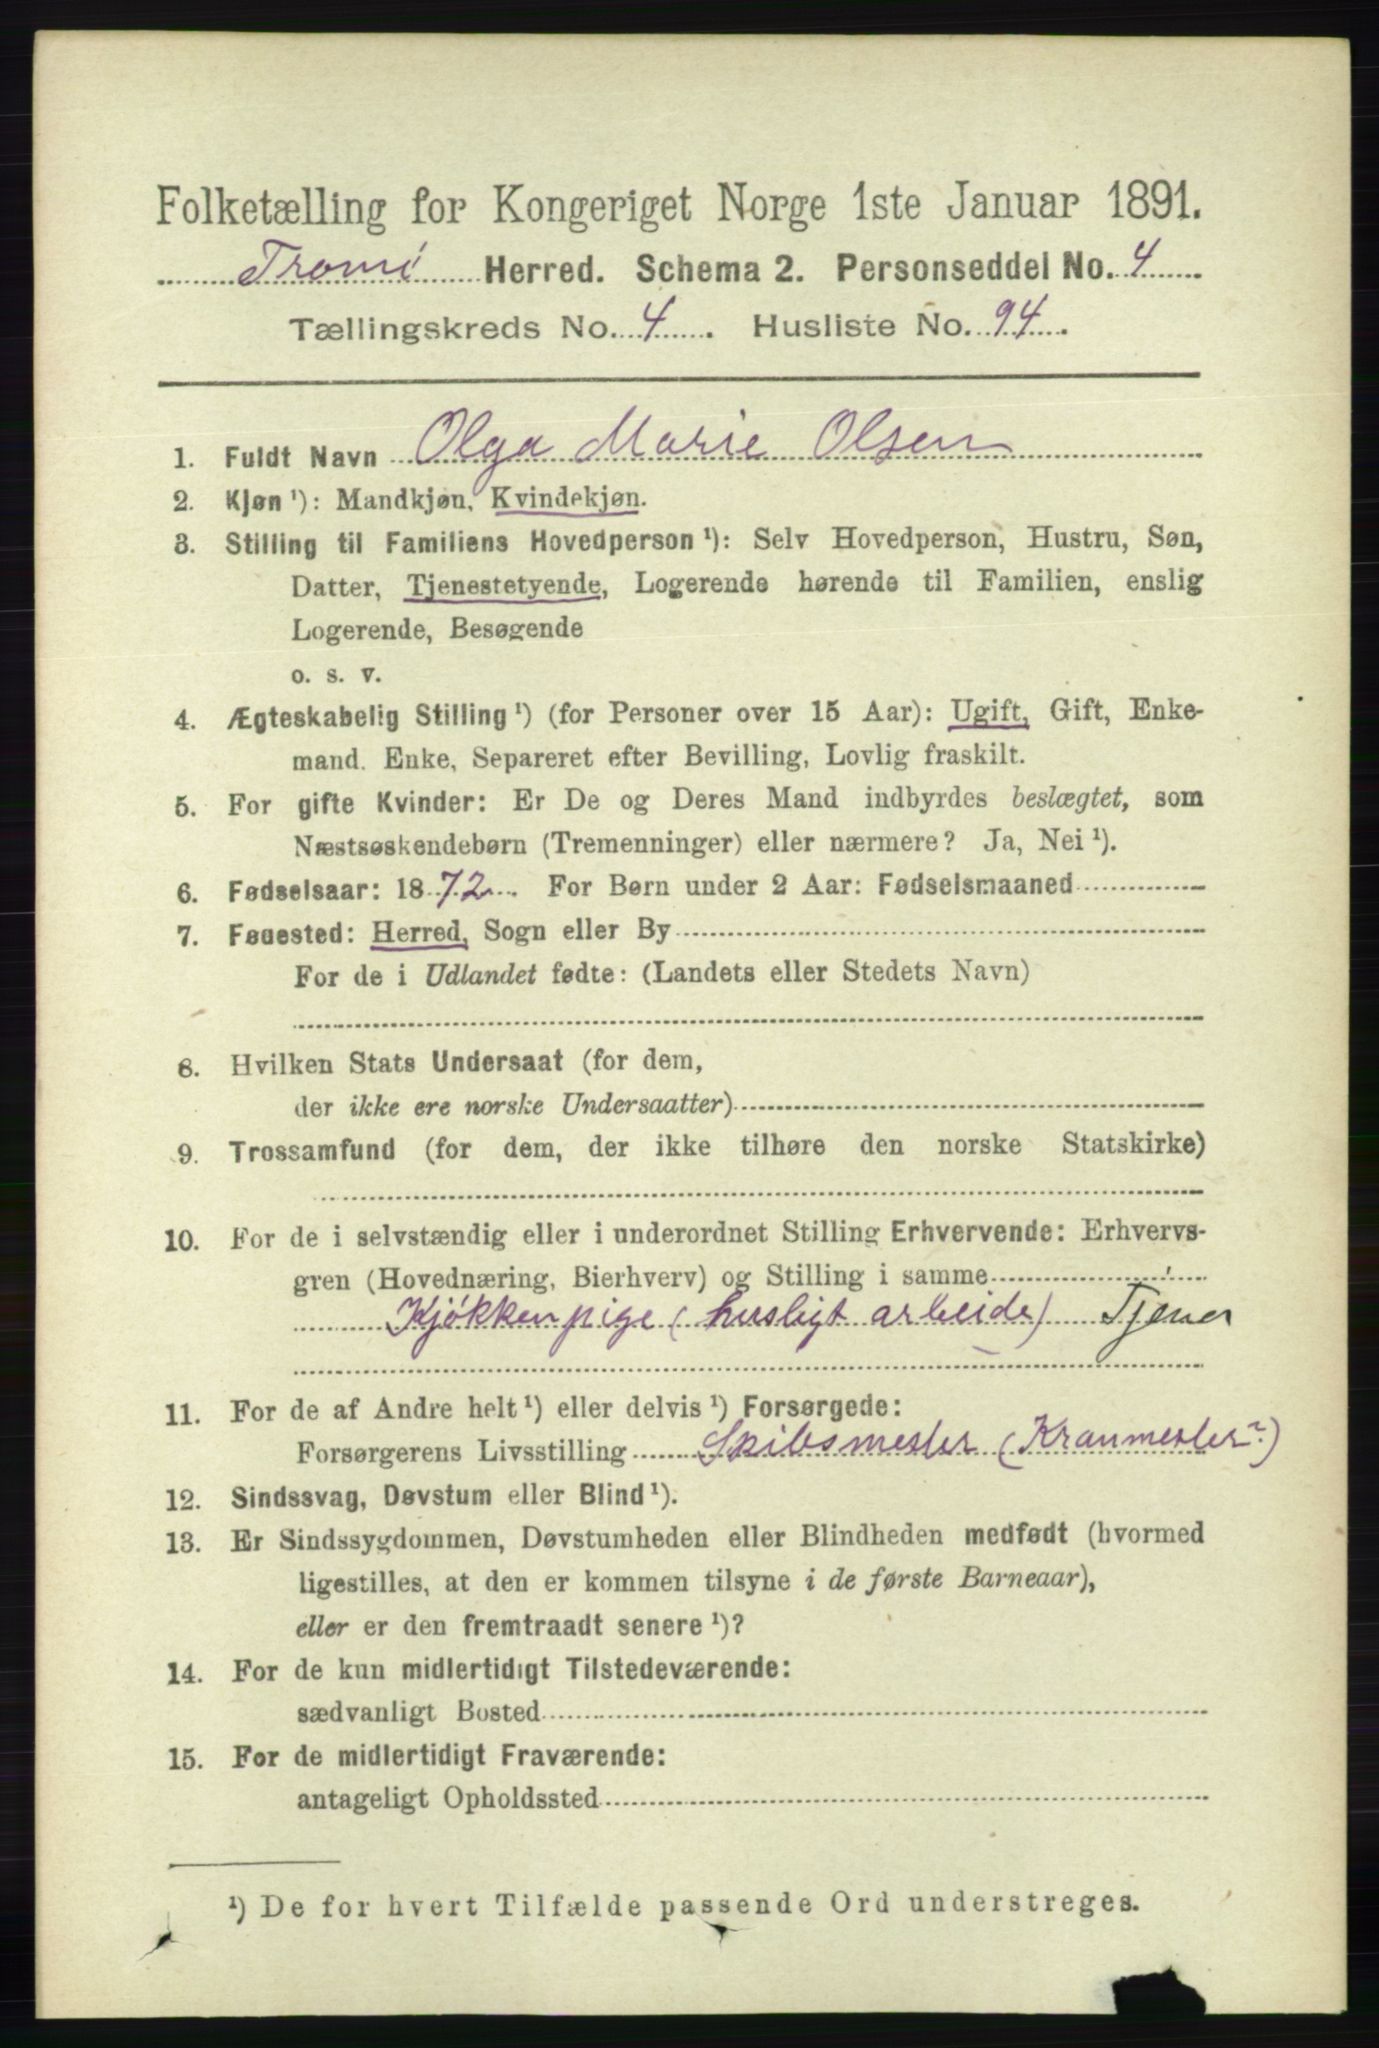 Folketælling for Kongeriget Norge 1ste Januar 1891.
Tromø Herred. Schema 2. Personseddel No. 4
Tællingskreds No. 4. Husliste No. 94.
1. Fuldt Navn Olga Marie Olsen
2. Kjøn ¹): Mandkjøn, Kvindekjøn.
3. Stilling til Familiens Hovedperson ¹): Selv Hovedperson, Hustru, Søn,
Datter, Tjenestetyende, Logerende hørende til Familien, enslig
Logerende, Besøgende
o. s. v.
4. Ægteskabelig Stilling ¹) (for Personer over 15 Aar): Ugift, Gift, Enke-
mand. Enke, Separeret efter Bevilling, Lovlig fraskilt.
5. For gifte Kvinder: Er De og Deres Mand indbyrdes beslægtet, som
Næstsøskendebørn (Tremenninger) eller nærmere? Ja, Nei ¹).
6. Fødselsaar: 1872. For Børn under 2 Aar: Fødselsmaaned
7. Fødested: Herred, Sogn eller By
For de i Udlandet fødte: (Landets eller Stedets Navn)
8. Hvilken Stats Undersaat (for dem,
der ikke ere norske Undersaatter)
9. Trossamfund (for dem, der ikke tilhøre den norske Statskirke)
10. For de i selvstændig eller i underordnet Stilling Erhvervende: Erhvervs-
gren (Hovednæring, Bierhverv) og Stilling i samme
Kjøkkenpige (husligt arbeide) Tjener
11. For de af Andre helt ¹) eller delvis ¹) Forsørgede:
Forsørgerens Livsstilling Skibsmester (Kranmester?)
12. Sindssvag, Døvstum eller Blind ¹).
13. Er Sindssygdommen, Døvstumheden eller Blindheden medfødt (hvormed
ligestilles, at den er kommen tilsyne i de første Barneaar),
eller er den fremtraadt senere ¹)?
14. For de kun midlertidigt Tilstedeværende:
sædvanligt Bosted
15. For de midlertidigt Fraværende:
antageligt Opholdssted
¹) De for hvert Tilfælde passende Ord understreges.